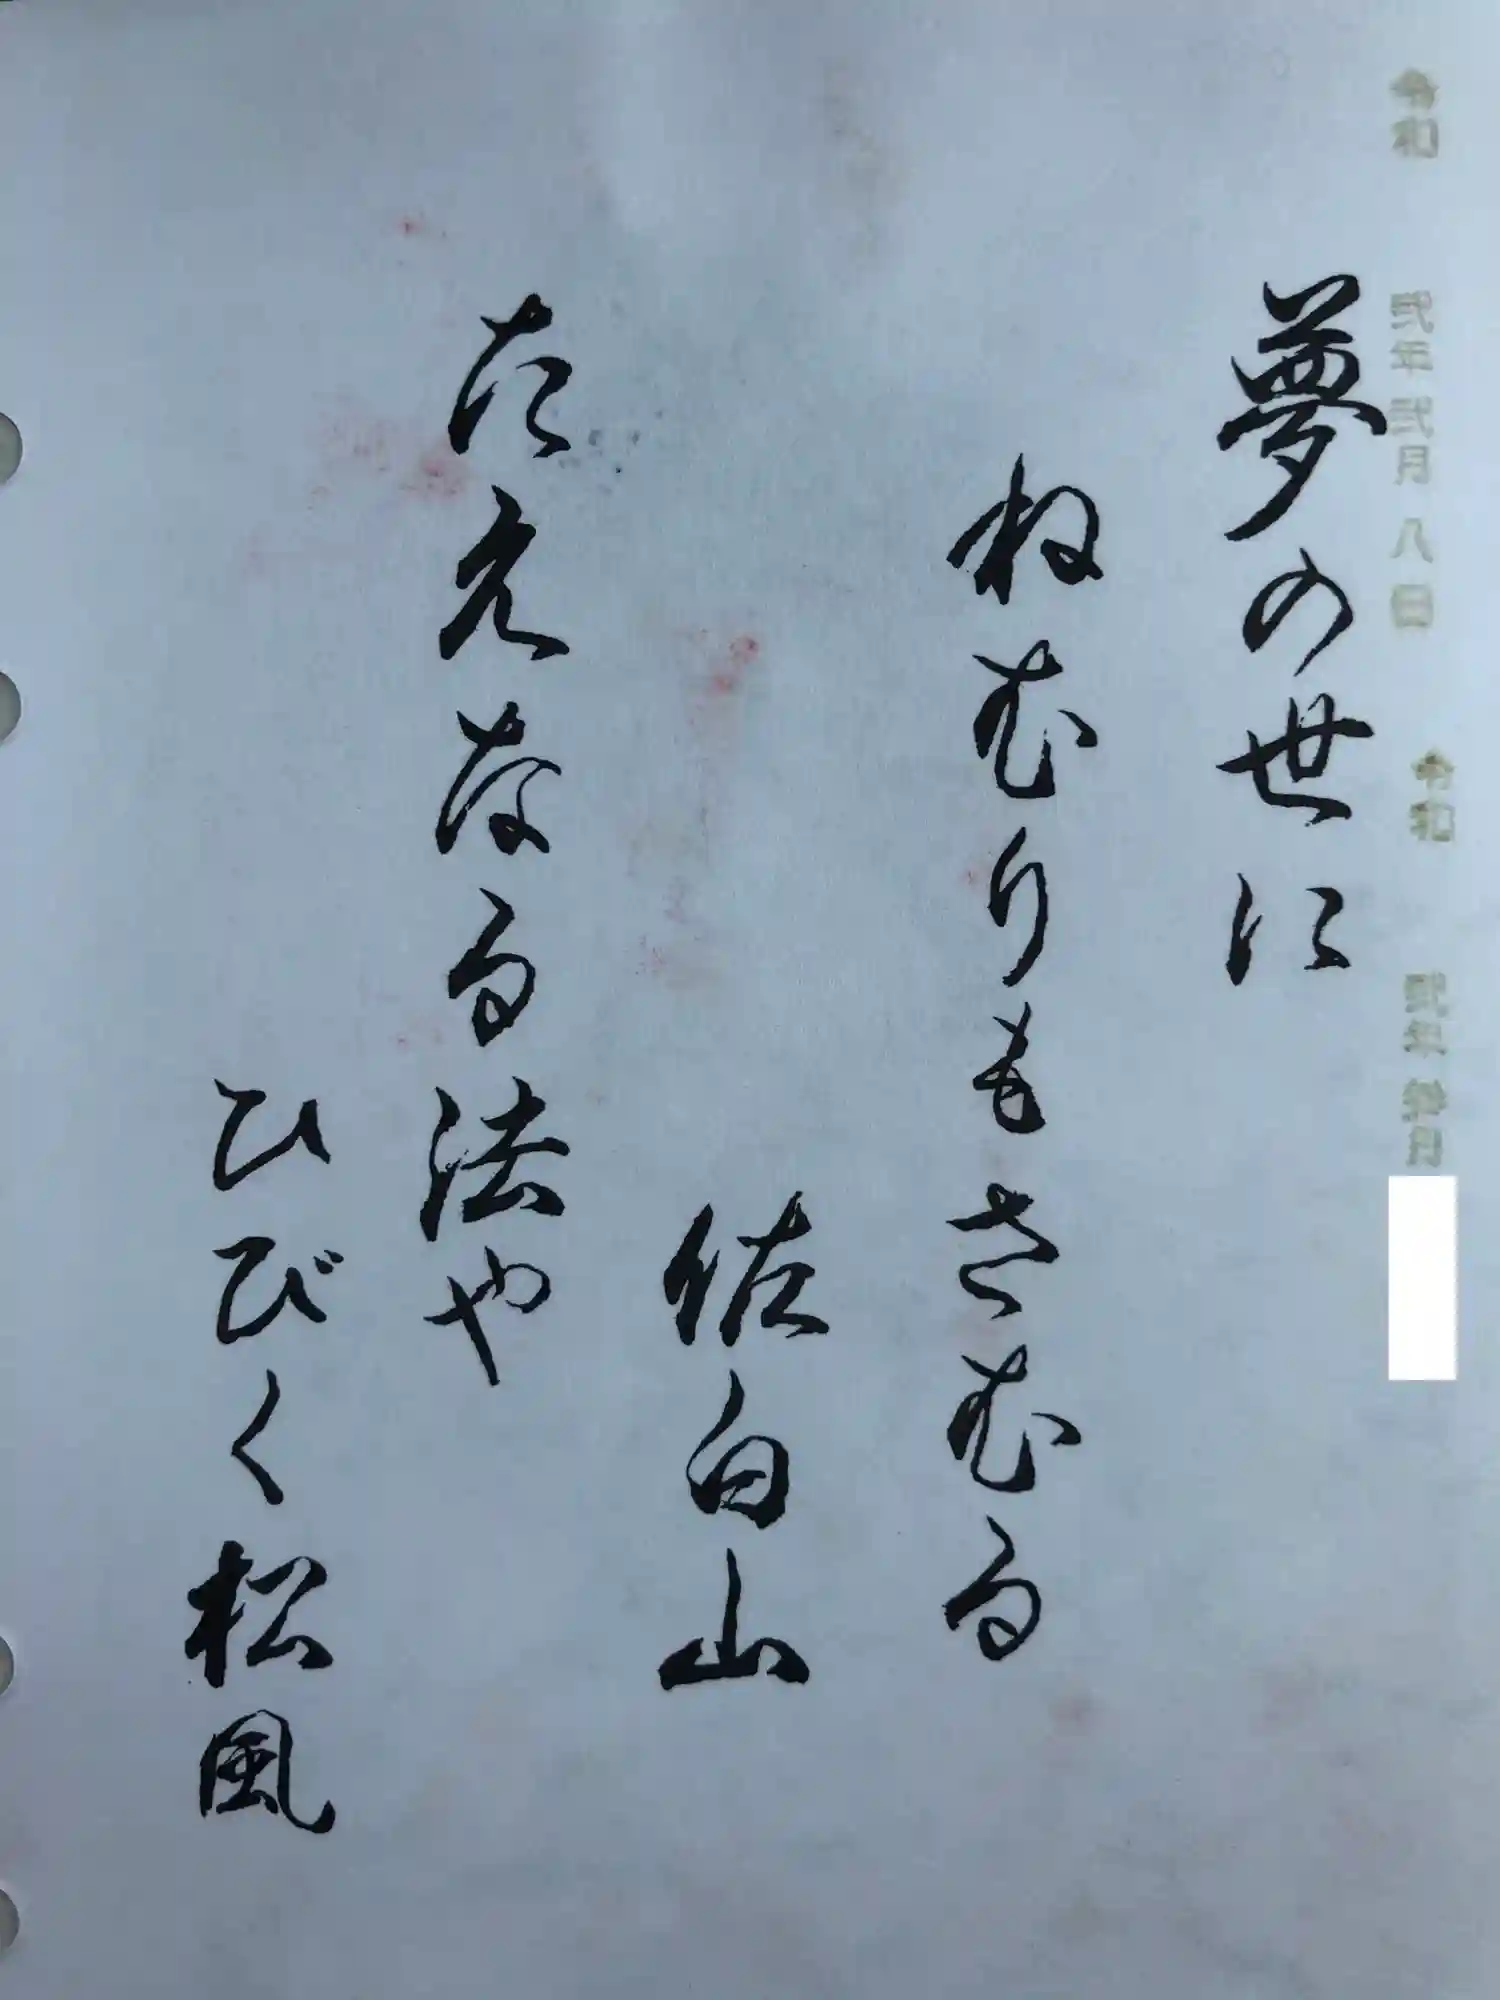 令和 弐年 弐月 八日 令和 弐年
夢の世に
ねむりもさむる
佐白山
たえなる法や
ひびく松風